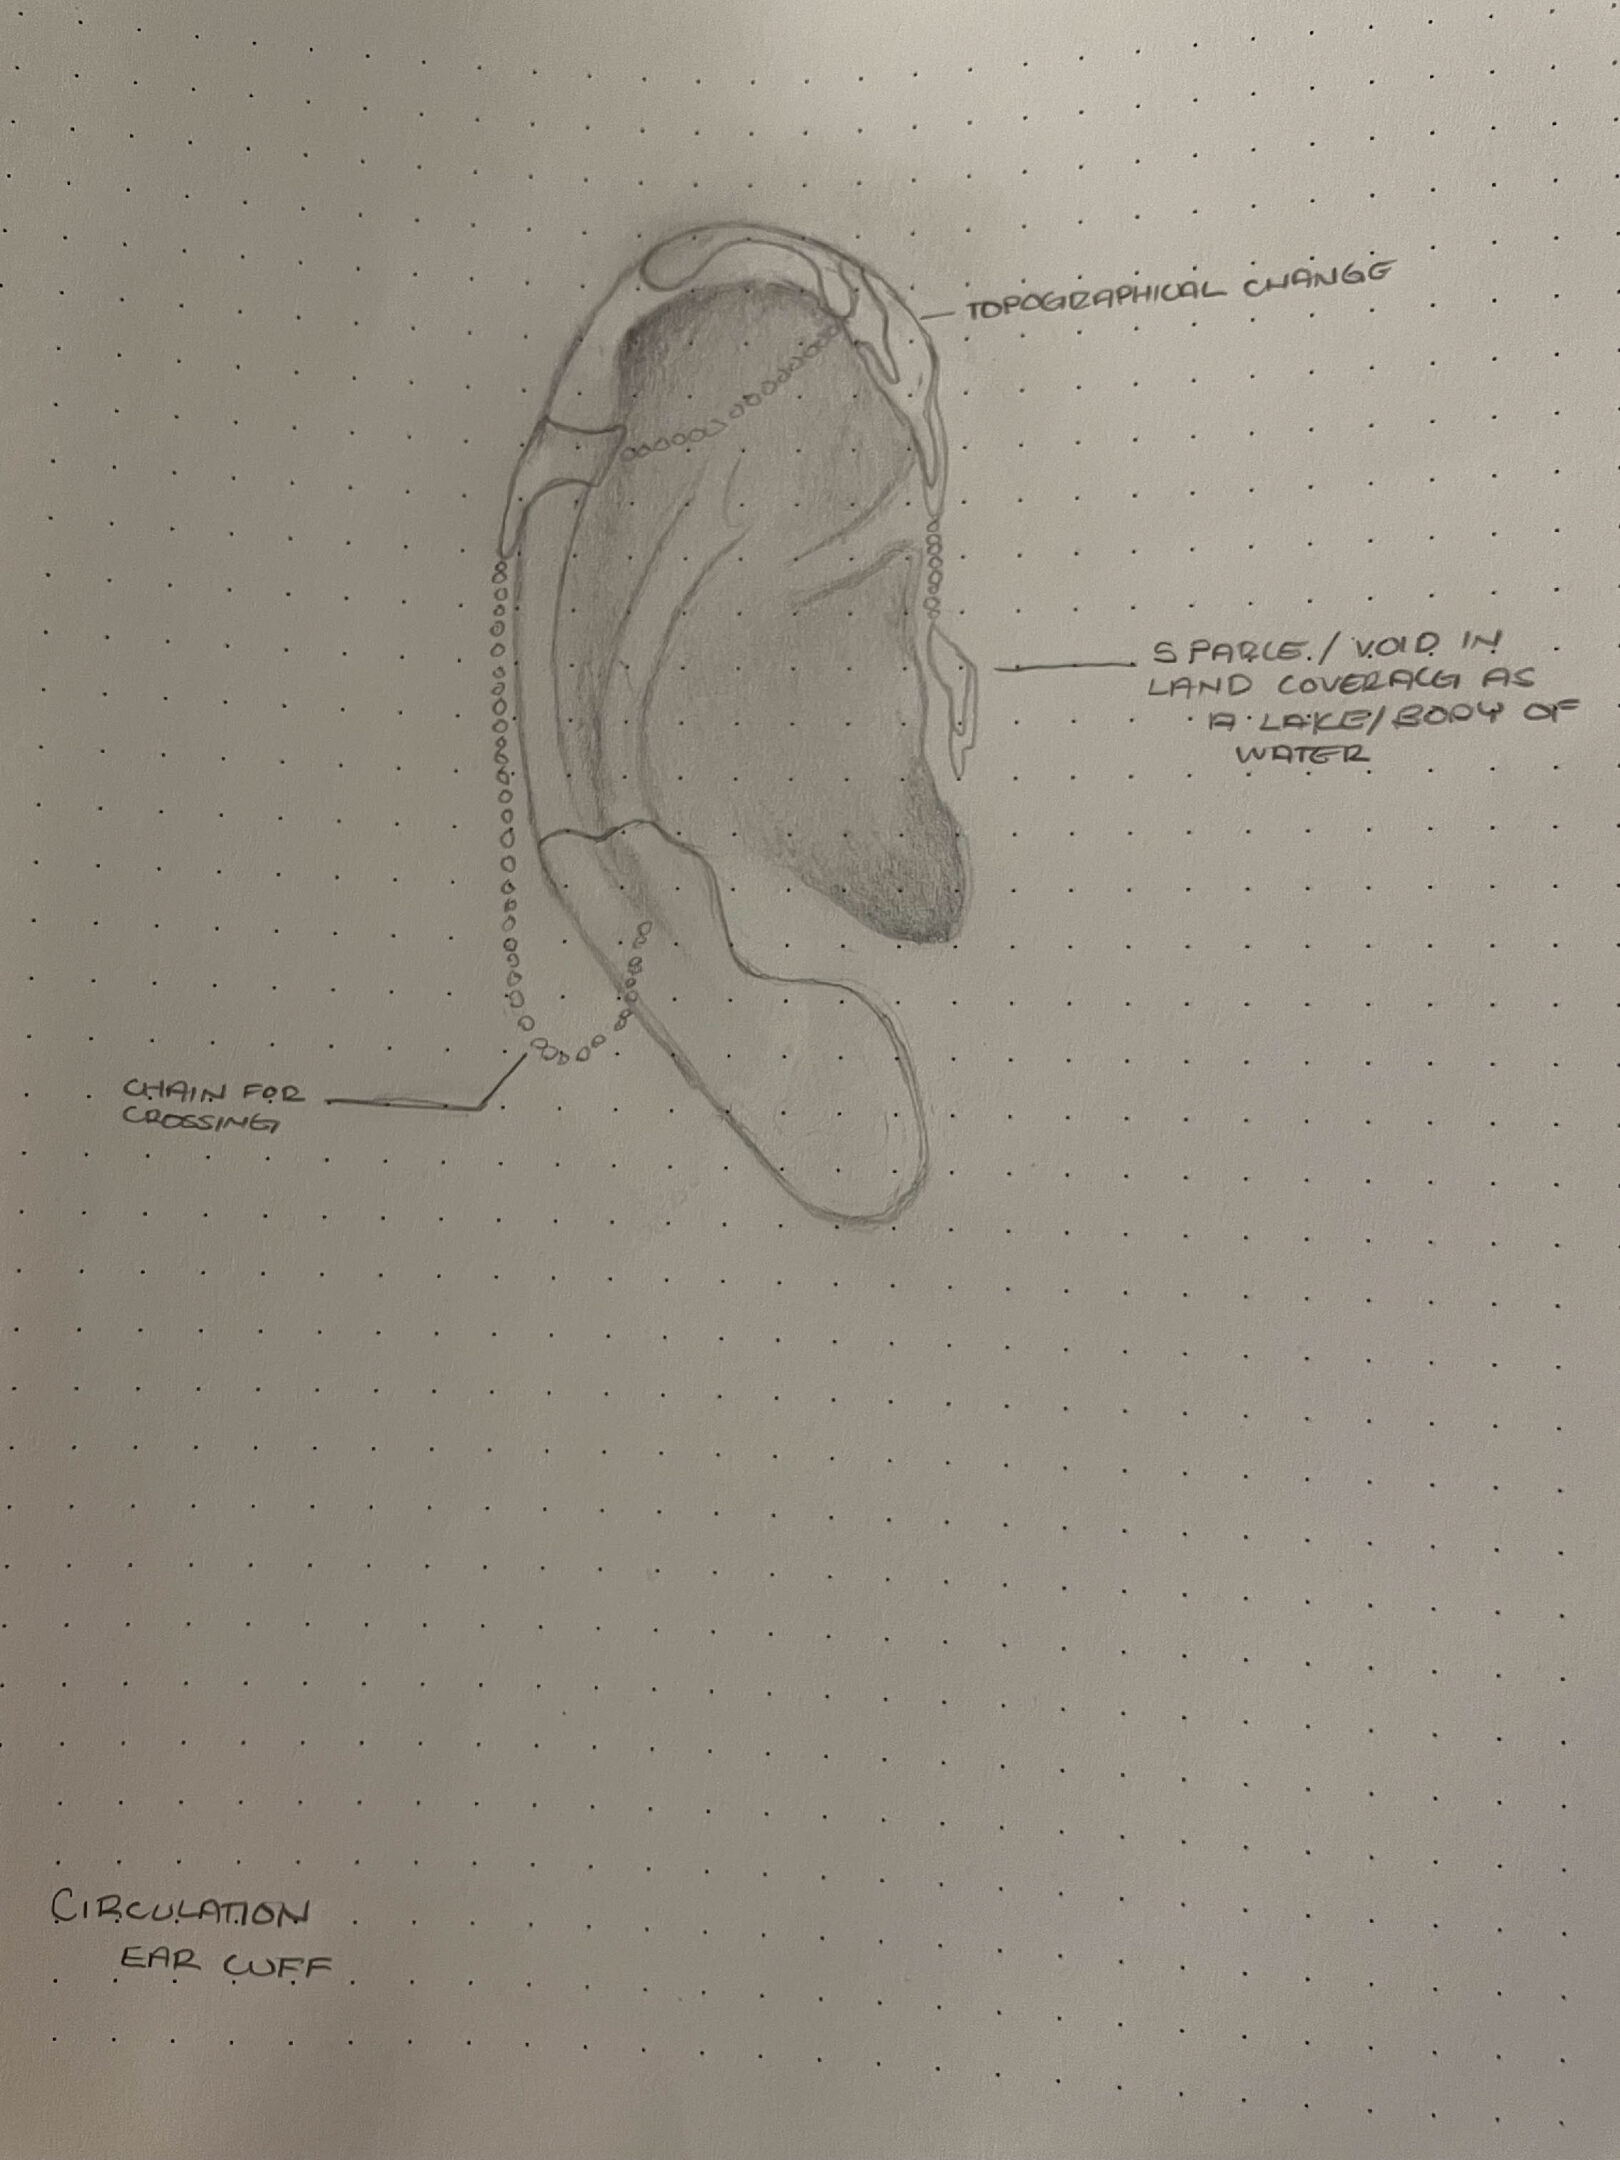 TOPOGRAPHICAL CHANGE
SPARCE / VOID IN
LAND COVERAGE AS
A LAKE/BODY OF
WATER
CHAIN FOR
CROSSING
CIRCULATION
EAR CUFF